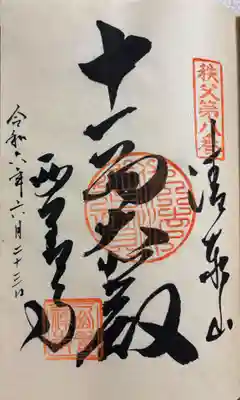 秩父第八番
清泰山
十一面大悲殿
西善寺
令和六年六月二十三日